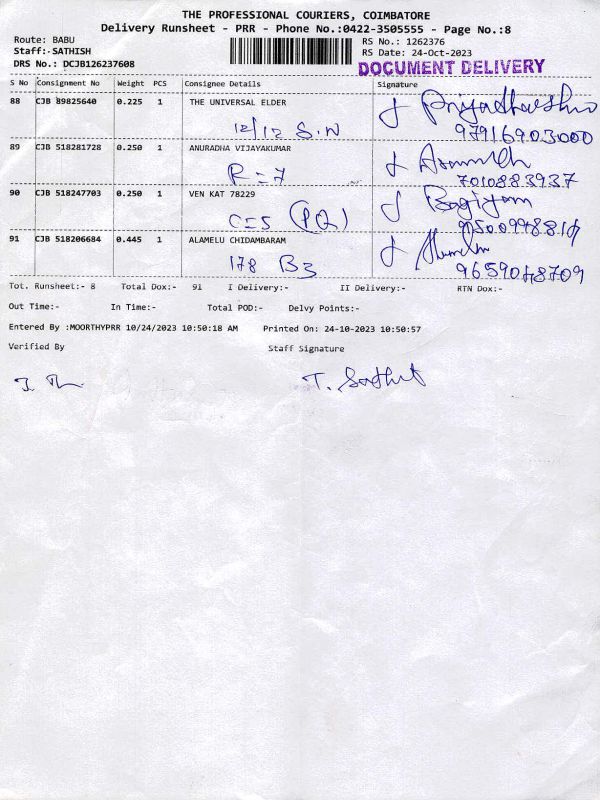 THE PROFESSIONAL COURIERS, COIMBATORE
Delivery Runsheet - PRR - Phone No.:0422-3505555 - Page No.:8
Route: BABU
RS No.: 1262376
Staff:-SATHISH
RS Date: 24-Oct-2023
DRS No.: DCJB126237608
DOCUMENT DELIVERY
S No Consignment No Weight PCS Consignee Details Signature
88 CJB 89825640 0.225 1 THE UNIVERSAL ELDER
12/12 S.N 97916903000
89 CJB 518281728 0.250 1 ANURADHA VIJAYAKUMAR
R=7 7010883937
90 CJB 518247703 0.250 1 VEN KAT 78229
C=5
91 CJB 518206684 0.445 1 ALAMELU CHIDAMBARAM
178 B3
Tot. Runsheet:- 8 Total Dox:- 91 I Delivery:- II Delivery:- RTN Dox:-
Out Time:- In Time:- Total POD:- Delvy Points:-
Entered By :MOORTHYPRR 10/24/2023 10:50:18 AM Printed On: 24-10-2023 10:50:57
Verified By Staff Signature